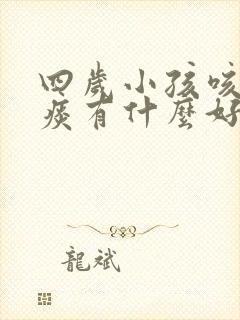 四歲小孩咳
痰有什麼好
龍斌